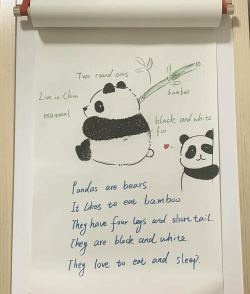 Two round ears
Live in China
mammal
bamboo
black and white
fur
Pandas are bears.
It likes to eat bamboo
They have four legs and short tail.
They are black and white
They love to eat and sleep.